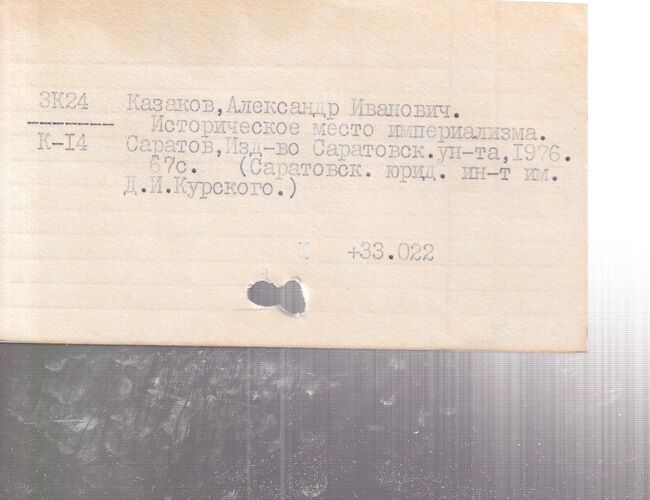 3К24 Казаков,Александр Иванович.
Историческое место империализма.
К-I4 Саратов,Изд-во Саратовск.ун-та,I976.
67с. (Саратовск. юрид. ин-т им.
Д.И.Курского.)
+33.022